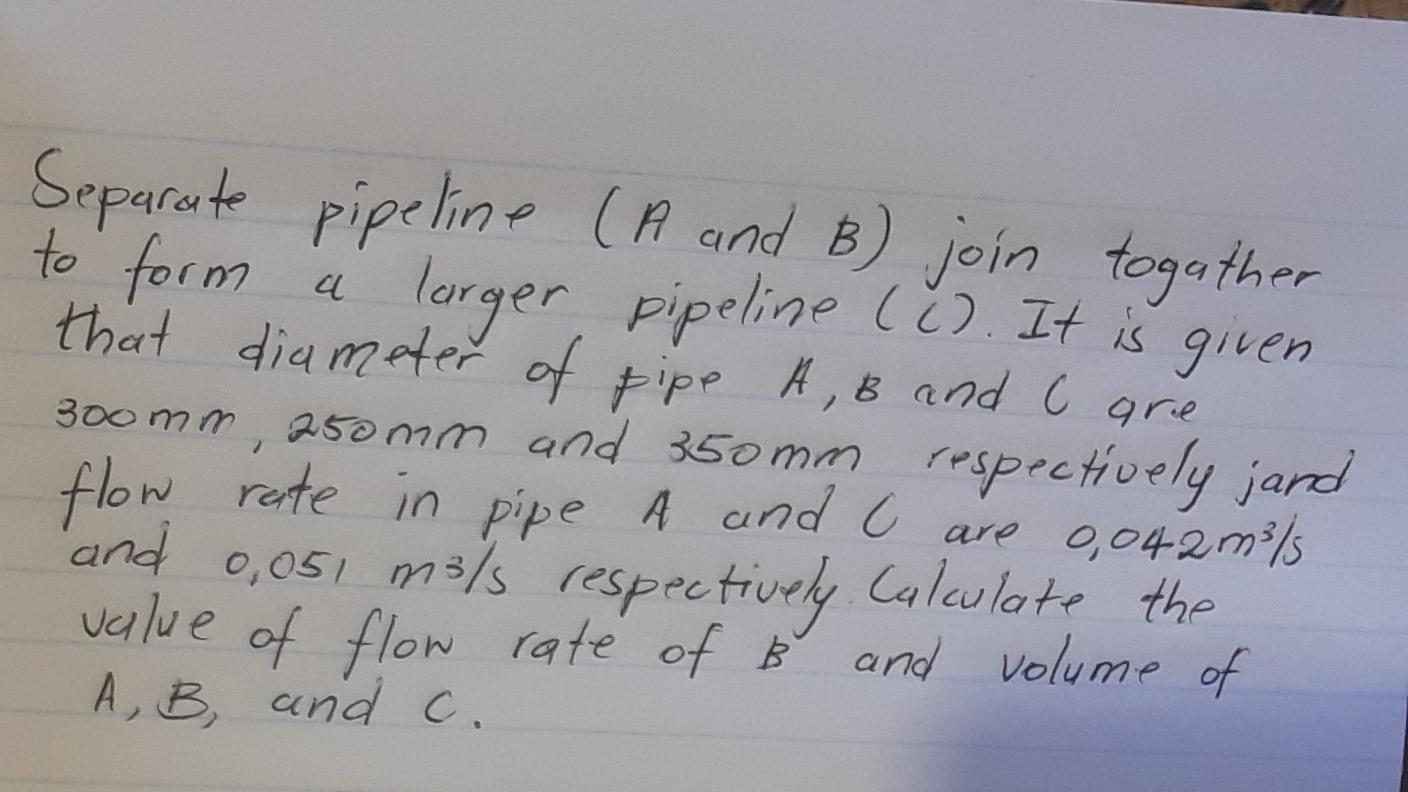 Separate pipeline (A and B) join togather
to form a larger pipeline (C). It is given
that diameter of pipe A, B and C are
300mm, 250mm and 350mm respectively jand
flow rate in pipe A and C are 0,042m³/s
and 0,051 m³/s respectively. Calculate the
value of flow rate of B and volume of
A, B, and C.